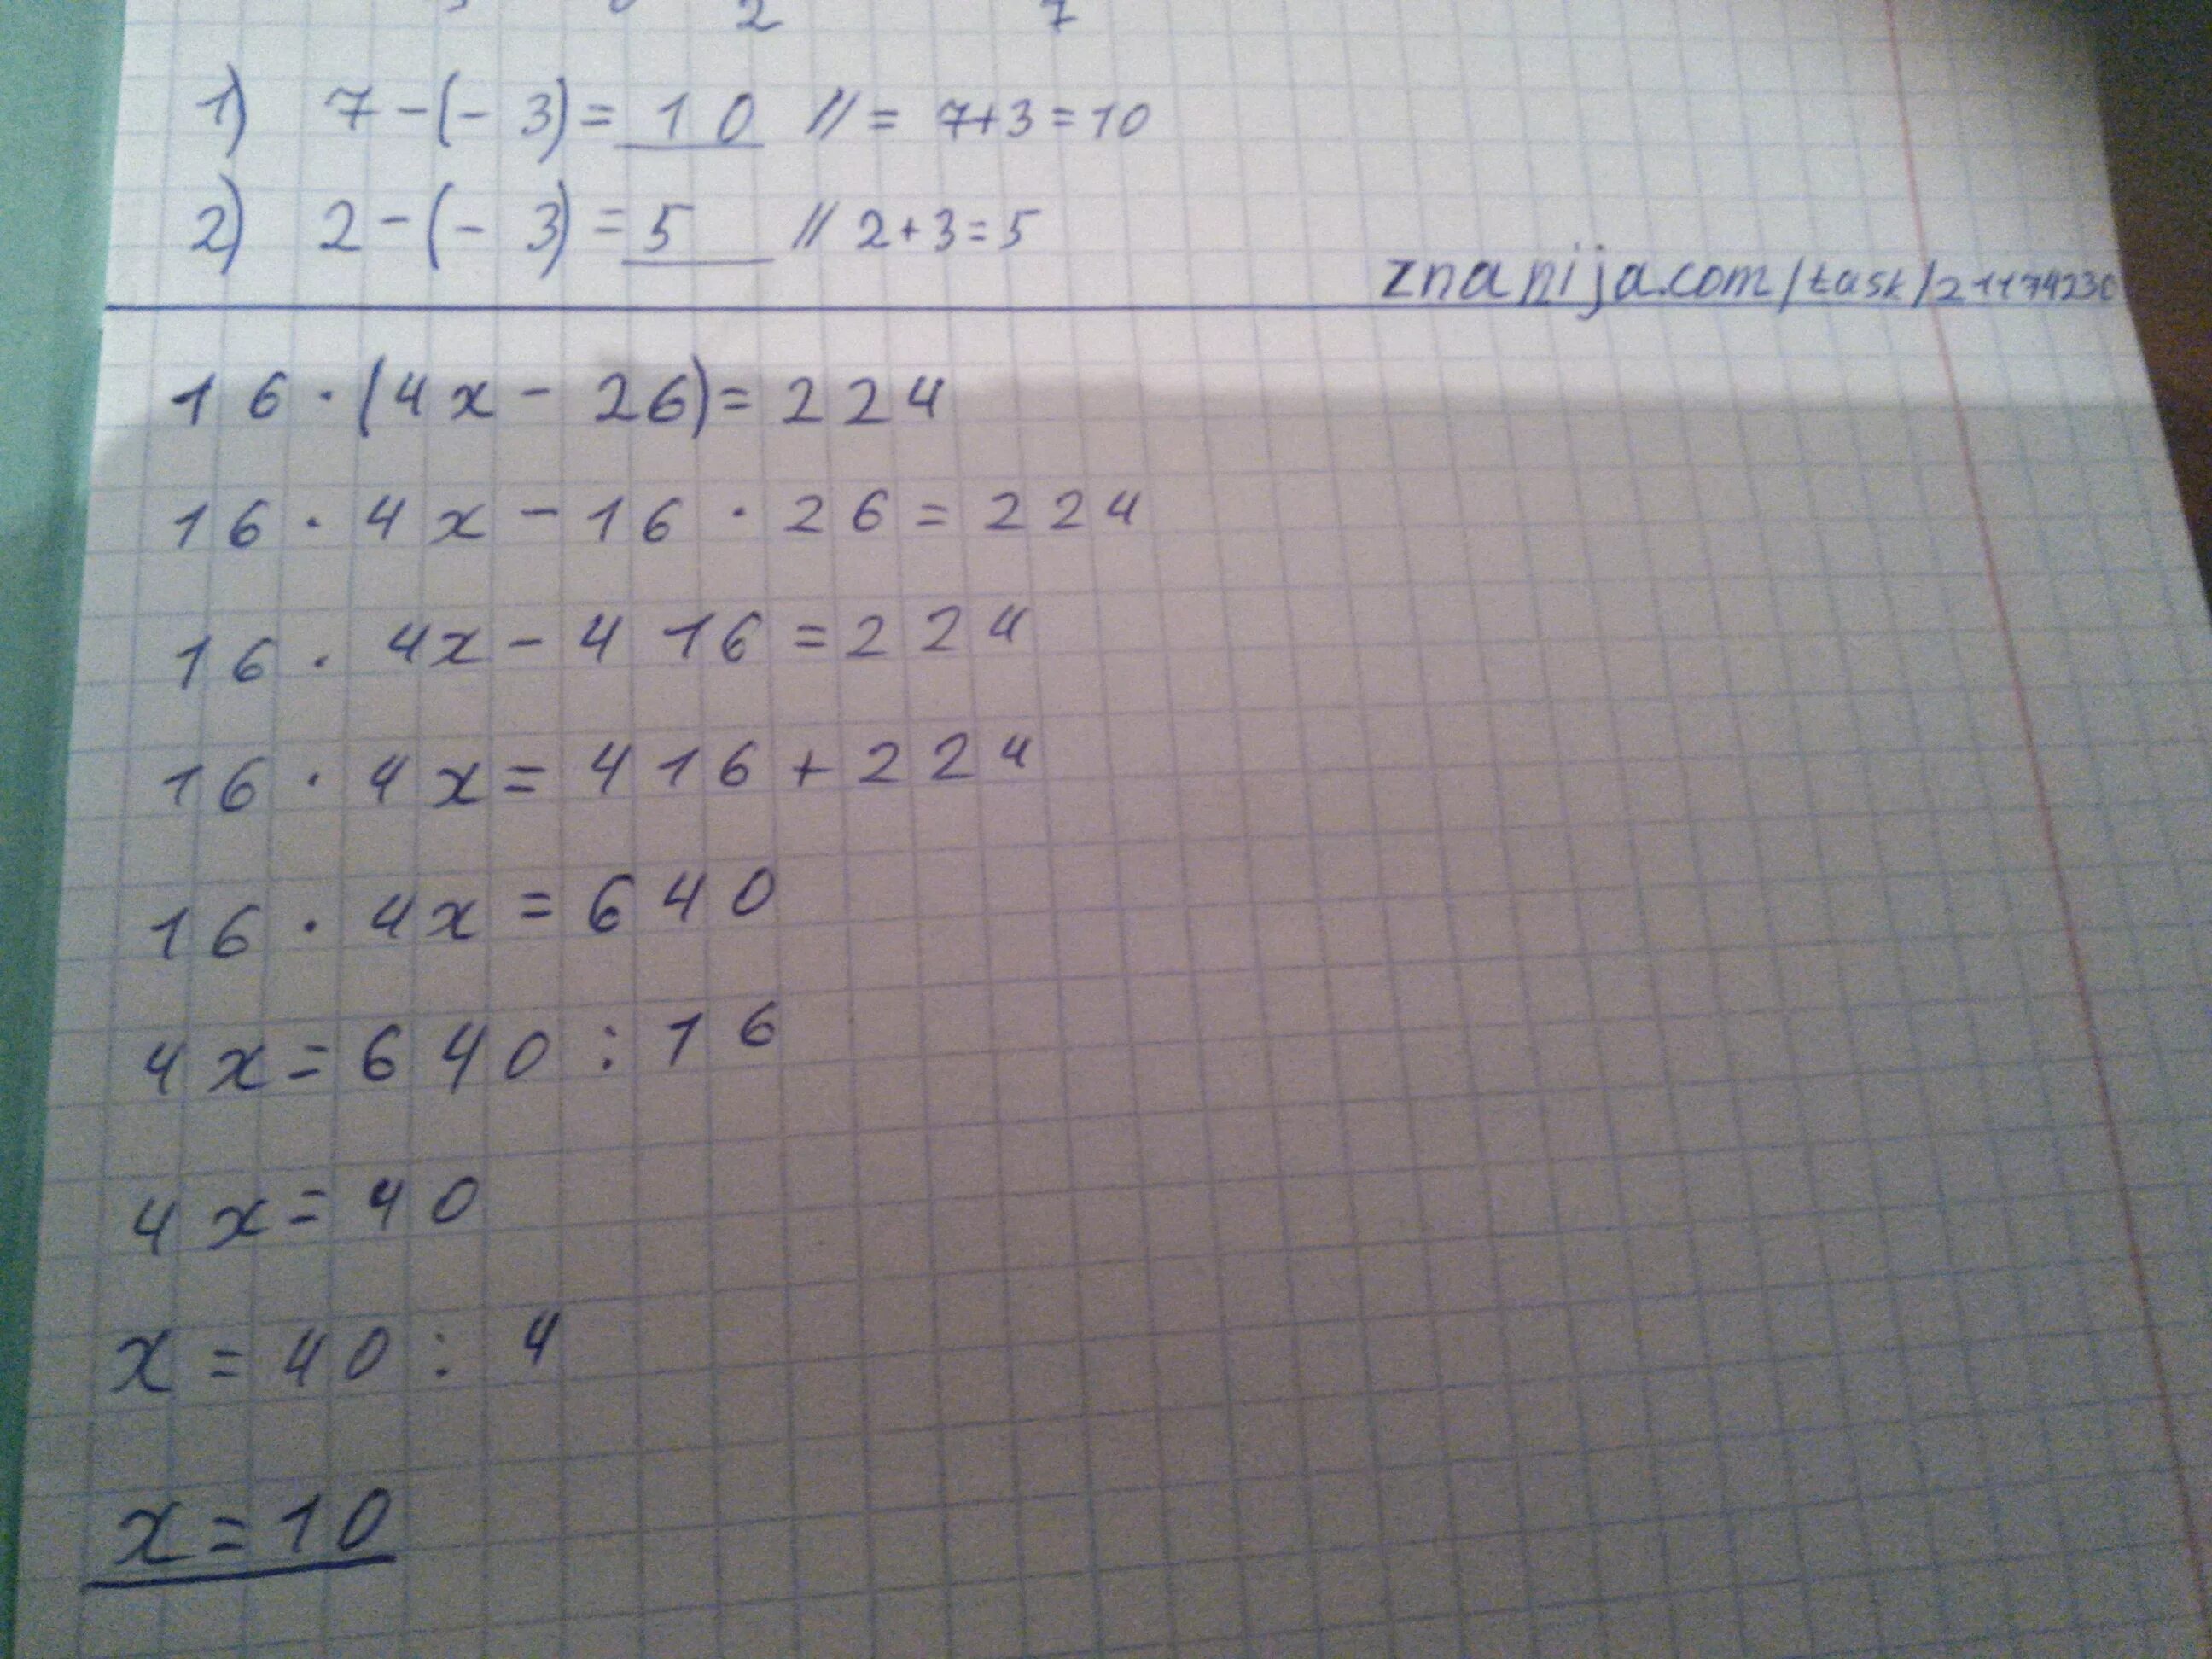 2 7
1) 7-(-3)= 10 // = 7+3=10
2) 2-(-3)=5 // 2+3=5
znanija.com/task/21174230
16·(4x-26)=224
16·4x-16·26=224
16·4x-416=224
16·4x=416+224
16·4x=640
4x=640:16
4x=40
x=40:4
x=10